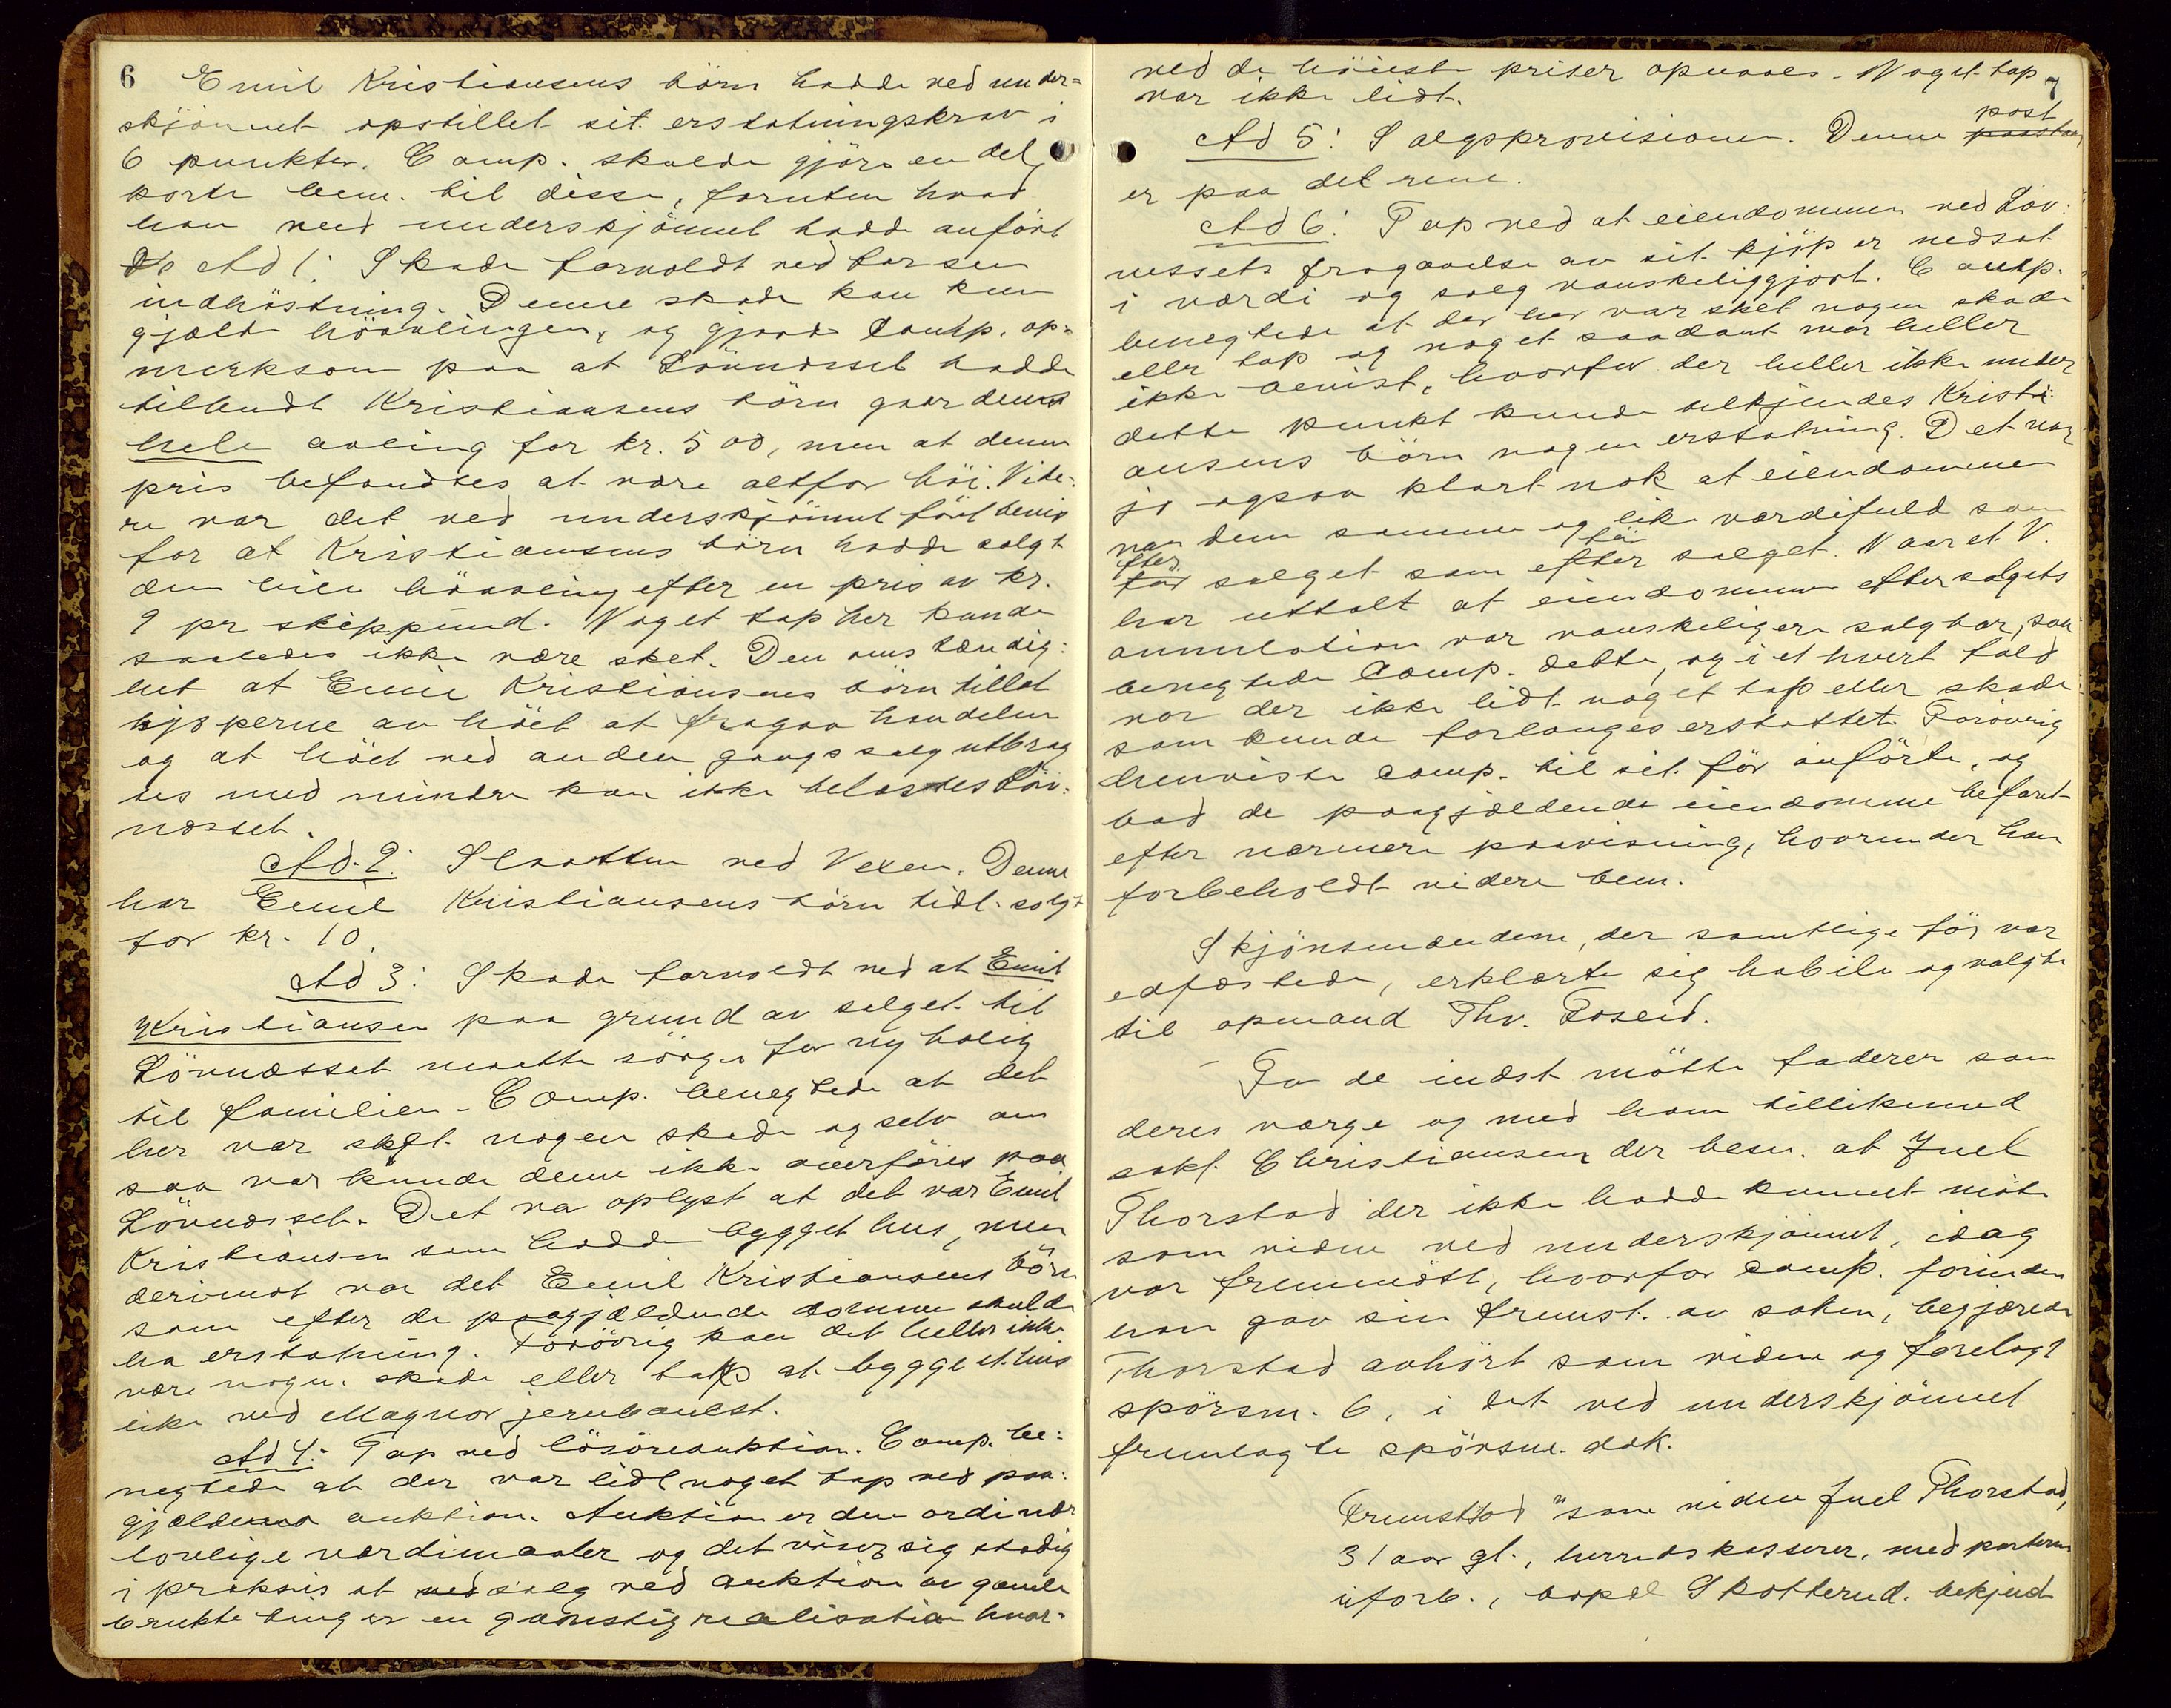 6
Emil Kristiansens börn hadde ved under=
skjönnet opstillet sit erstatningskrav i
6 punkter. Comp. skulde gjöre en del
korte bem. til disse, foruten hvad
han ved underskjönnet hadde anfört
Ad 1: Skade forvoldt ved for sen
indhöstning. Denne skade kan kun
gjælde höavlingen, og gjorde Comp. op=
merksom paa at Lövnæsset hadde
tilbudt Kristiansens börn gaardens
hele avling for kr. 500, men at denne
pris befandtes at være altfor höi. Vide=
re var det ved underskjönnet fört bevis
for at Kristiansens börn hadde solgt
den hele höavling efter en pris av kr.
9 pr skippund. Noget tap her kunde
saaledes ikke være sket. Den omstændig=
het at Emil Kristiansens börn tillot
kjöperne av höet at fragaa handelen
og at höet ved anden gangs salg utbrag
tes med mindre kan ikke belastes Löv=
næsset.
Ad. 2: Slaatten ved Vexen. Denne
har Emil Kristiansens börn tidl. solgt
for kr. 10.
Ad 3: Skade forvoldt ved at Emil
Kristiansen paa grund av salget til
Lövnæsset maatte sörge for ny bolig
til familien. Comp. benegtede at det
her var sket nogen skade og selv om
saa var kunde denne ikke overföres paa
Lövnæsset. Det va oplyst at det var Emil
Kristiansen som hadde bygget hus, men
derimot var det Emil Kristiansens börn
som efter de paagjældende domme skulde
ha erstatning. Forövrig kan det heller ikke
være nogen skade eller tap at bygge et hus
like ved Magnor jernbanest.
Ad 4: Tap ved lösöreauktion. Comp. be=
negtede at der var lidt noget tap ved paa=
gjældende auktion. Auktion er den ordinær
lovlige værdimaaler og det viser sig stadig
i praksis at ved salg ved auktion av gamle
brukte ting er en gunstig realisation hvor=
7
ved de höieste priser opnaaes. Noget tap
var ikke lidt.
post
Ad 5: Salgsprovisionen. Denne paastaa
er paa det rene.
Ad 6: Tap ved at eiendommen ved Löv=
næssets fragaaelse av sit kjöp er nedsat
i værdi og salg vanskeliggjort. Comp.
benegtede at der her var sket nogen skade
eller tap og noget saadant var heller
ikke bevist, hvorfor der heller ikke under
dette punkt kunde tilkjendes Kristi=
ansens börn nogen erstatning. Det var
jo ogsaa klart nok at eiendommen
var den samme og like værdifuld som
efter för
för salget som efter salget. Naar et V.
har uttalt at eiendommen efter salgets
annulation var vanskeligere salgbar, saa
benegtede Comp. dette, og i et hvert fald
var der ikke lidt noget tap eller skade
som kunde forlanges erstattet. Forövrig
henviste comp. til sit för anförte, og
bad de paagjældende eiendomme befaret
efter nærmere paavisning, hvorunder han
forbeholdt videre bem.
Skjönsmændene, der samtlige för var
edfæstede, erklærte sig habile og valgte
til opmand Thv. Foseid.
For de indst. mötte faderen som
deres værge og med ham tillikemed
sakf. Christiansen der bem. at Juel
Thorstad der ikke hadde kunnet möte
som vidne ved underskjönnet, idag
var fremmött, hvorfor comp. forinden
han gav sin fremst. av saken, begjærede
Thorstad avhört som vidne og forelagt
spörsm. 6, i det ved underskjönnet
fremlagte spörsm. dok.
Fremstod som vidne Juel Thorstad,
31 aar gl., herredskasserer, med parterne
uforb., bopæl Skotterud. bekjendt